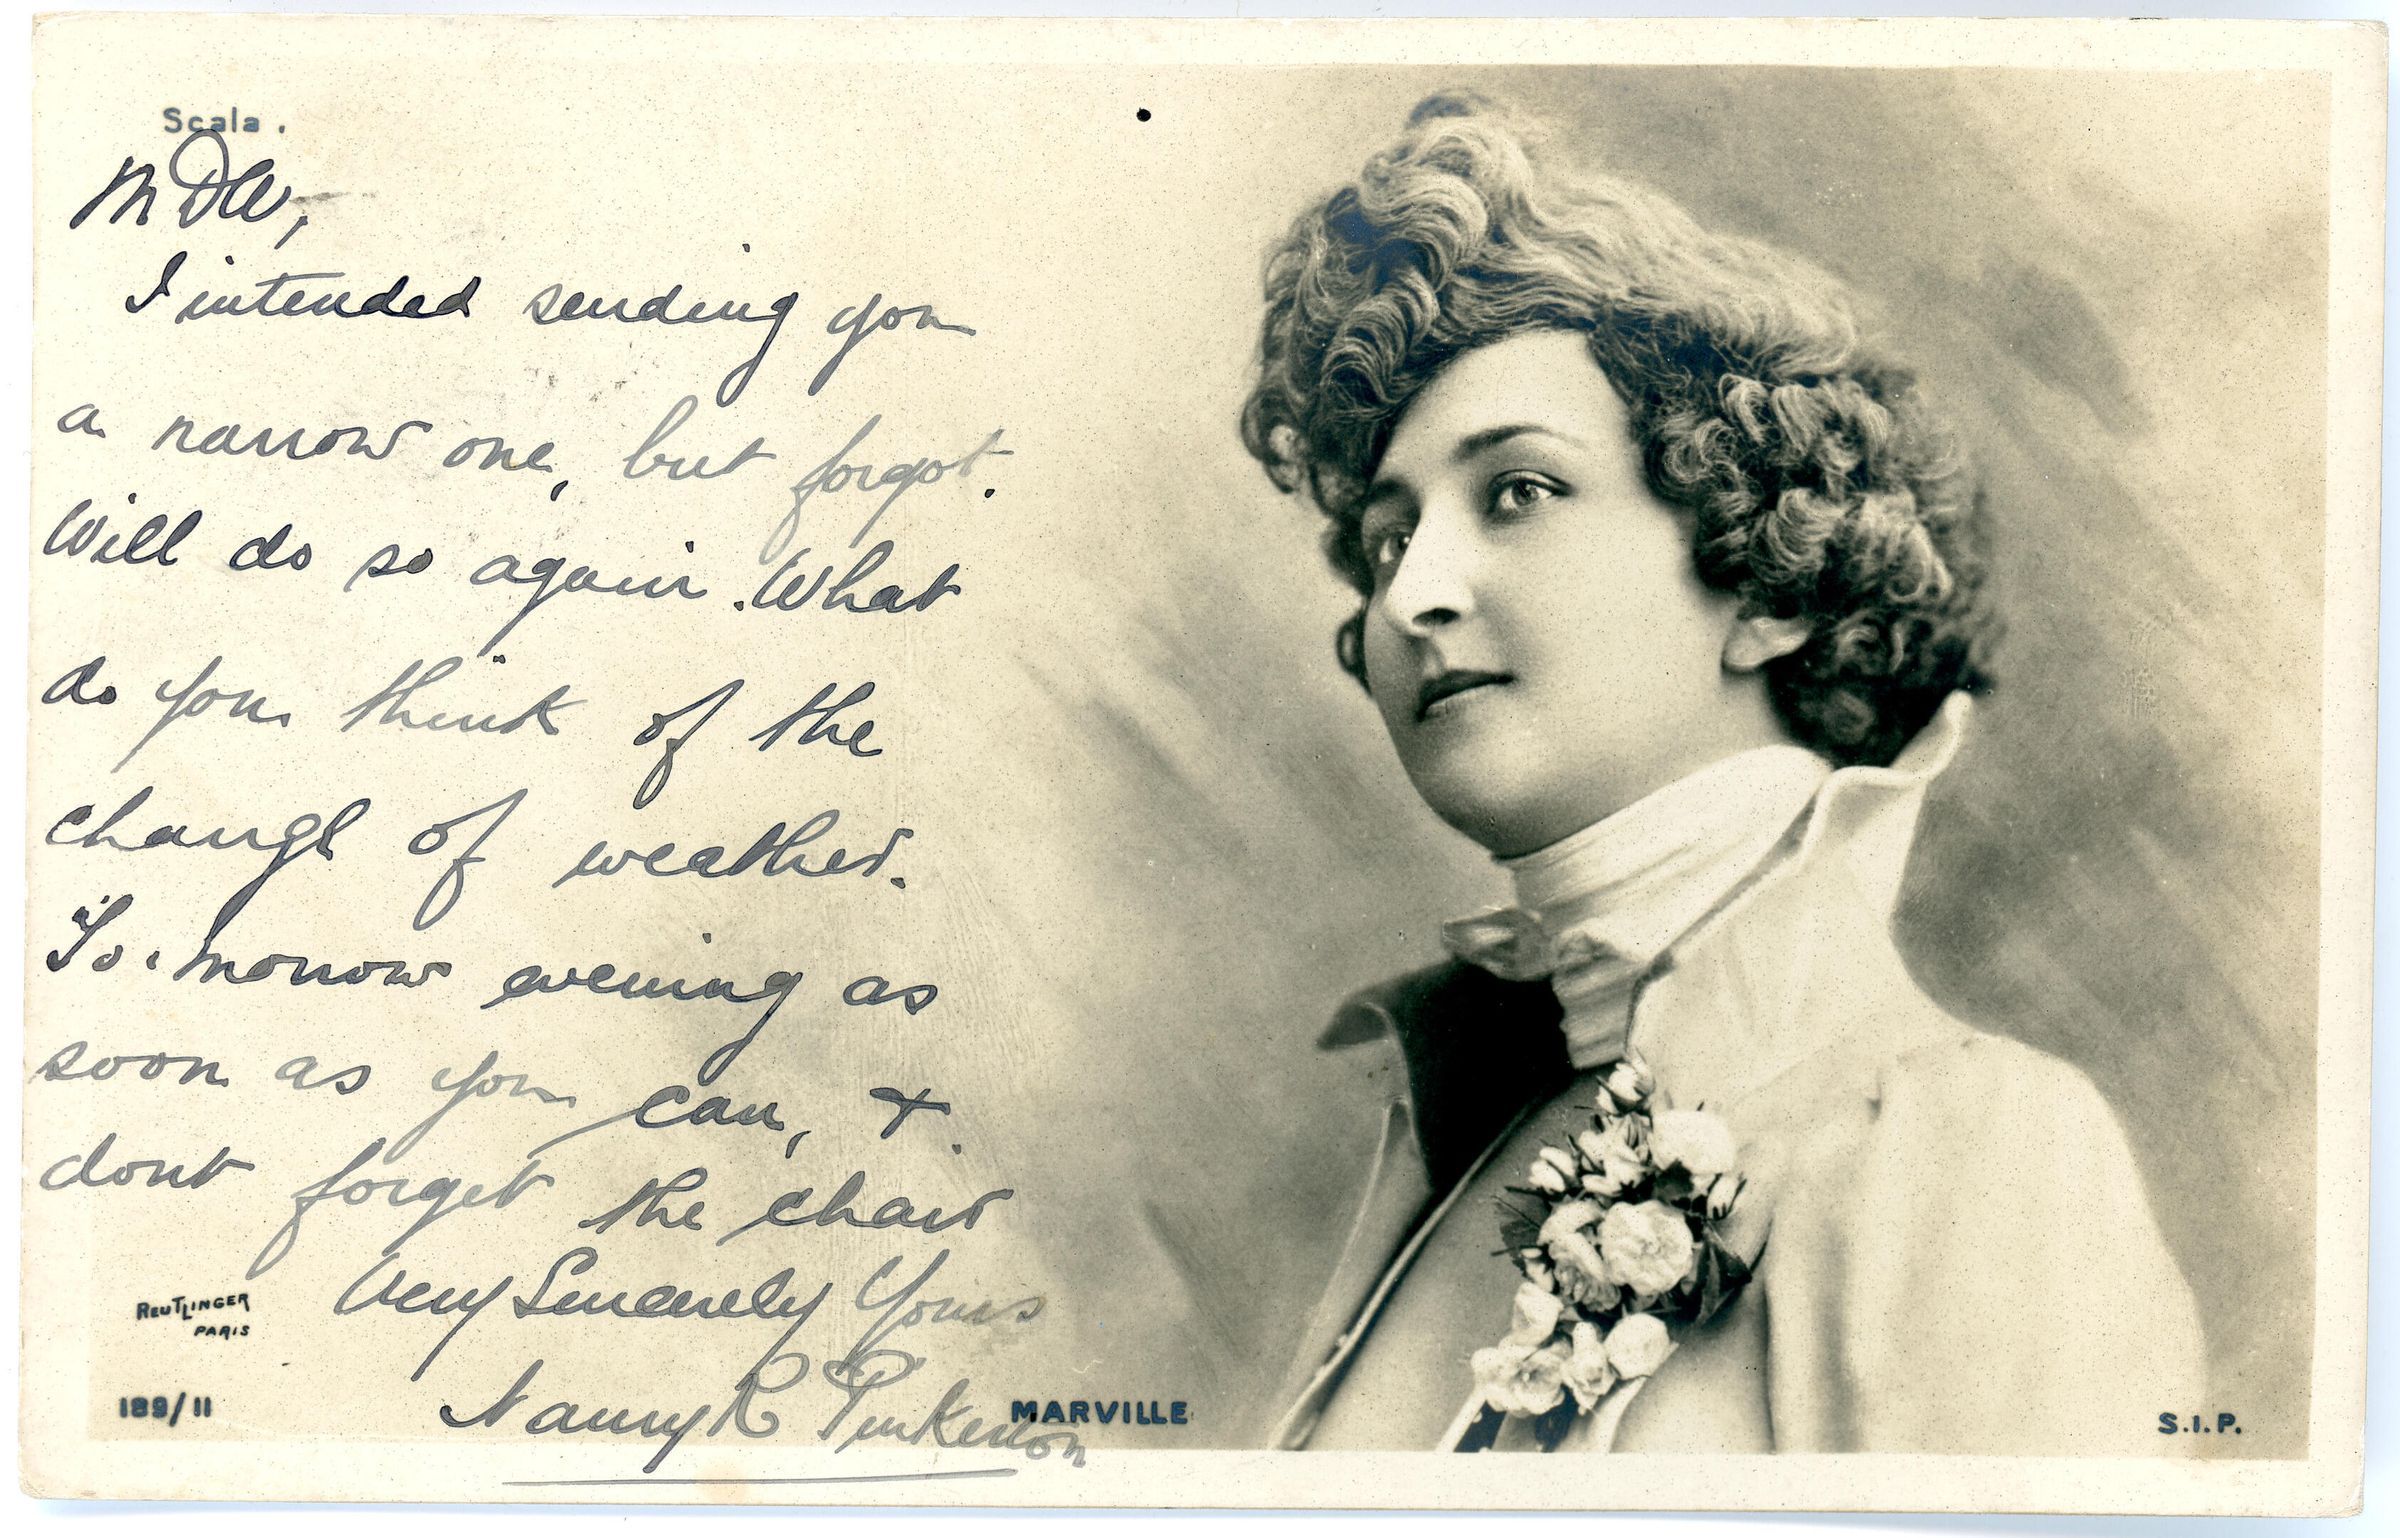 Scala.
M D W,
I intended sending you
a narrow one, but forgot.
Will do so again. What
do you think of the
change of weather.
To-morrow evening as
soon as you can, &
dont forget the chair
Very Sincerely Yours
Nanny R Pinkerton
REUTLINGER
PARIS
189/11
MARVILLE
S.I.P.